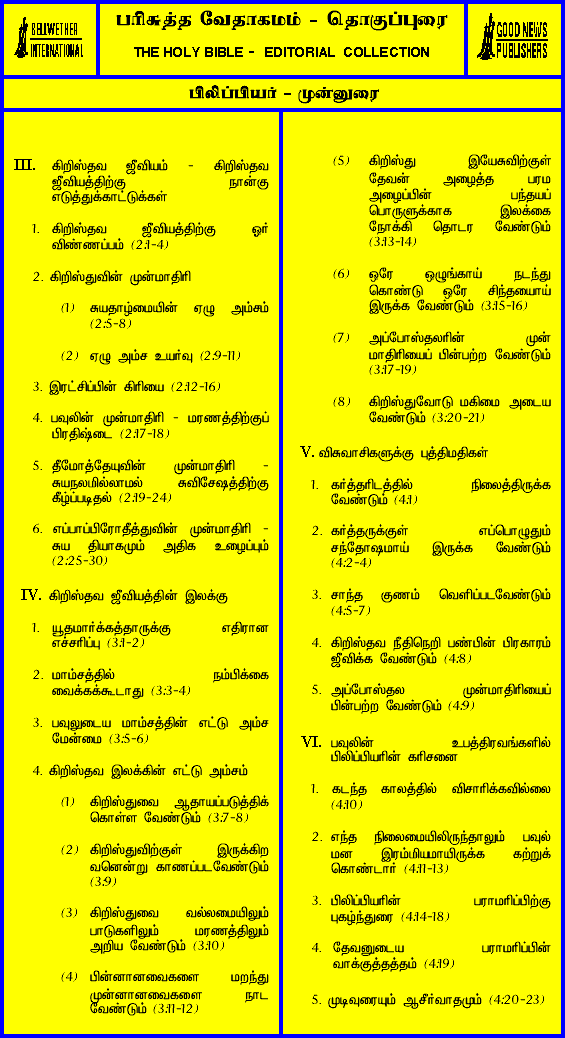 BELLWETHER
INTERNATIONAL
பரிசுத்த வேதாகமம் - தொகுப்புரை
THE HOLY BIBLE - EDITORIAL COLLECTION
GOOD NEWS
PUBLISHERS
பிலிப்பியர் - முன்னுரை
III. கிறிஸ்தவ ஜீவியம் - கிறிஸ்தவ
ஜீவியத்திற்கு நான்கு
எடுத்துக்காட்டுக்கள்
1. கிறிஸ்தவ ஜீவியத்திற்கு ஓர்
விண்ணப்பம் (2:1-4)
2. கிறிஸ்துவின் முன்மாதிரி
(1) சுயதாழ்மையின் ஏழு அம்சம்
(2:5-8)
(2) ஏழு அம்ச உயர்வு (2:9-11)
3. இரட்சிப்பின் கிரியை (2:12-16)
4. பவுலின் முன்மாதிரி - மரணத்திற்குப்
பிரதிஷ்டை (2:17-18)
5. தீமோத்தேயுவின் முன்மாதிரி -
சுயநலமில்லாமல் சுவிசேஷத்திற்கு
கீழ்ப்படிதல் (2:19-24)
6. எப்பாப்பிரோதீத்துவின் முன்மாதிரி -
சுய தியாகமும் அதிக உழைப்பும்
(2:25-30)
IV. கிறிஸ்தவ ஜீவியத்தின் இலக்கு
1. யூதமார்க்கத்தாருக்கு எதிரான
எச்சரிப்பு (3:1-2)
2. மாம்சத்தில் நம்பிக்கை
வைக்கக்கூடாது (3:3-4)
3. பவுலுடைய மாம்சத்தின் எட்டு அம்ச
மேன்மை (3:5-6)
4. கிறிஸ்தவ இலக்கின் எட்டு அம்சம்
(1) கிறிஸ்துவை ஆதாயப்படுத்திக்
கொள்ள வேண்டும் (3:7-8)
(2) கிறிஸ்துவிற்குள் இருக்கிற
வனென்று காணப்படவேண்டும்
(3:9)
(3) கிறிஸ்துவை வல்லமையிலும்
பாடுகளிலும் மரணத்திலும்
அறிய வேண்டும் (3:10)
(4) பின்னானவைகளை மறந்து
முன்னானவைகளை நாட
வேண்டும் (3:11-12)
(5) கிறிஸ்து இயேசுவிற்குள்
தேவன் அழைத்த பரம
அழைப்பின் பந்தயப்
பொருளுக்காக இலக்கை
நோக்கி தொடர வேண்டும்
(3:13-14)
(6) ஒரே ஒழுங்காய் நடந்து
கொண்டு ஒரே சிந்தையாய்
இருக்க வேண்டும் (3:15-16)
(7) அப்போஸ்தலரின் முன்
மாதிரியைப் பின்பற்ற வேண்டும்
(3:17-19)
(8) கிறிஸ்துவோடு மகிமை அடைய
வேண்டும் (3:20-21)
V. விசுவாசிகளுக்கு புத்திமதிகள்
1. கர்த்தரிடத்தில் நிலைத்திருக்க
வேண்டும் (4:1)
2. கர்த்தருக்குள் எப்பொழுதும்
சந்தோஷமாய் இருக்க வேண்டும்
(4:2-4)
3. சாந்த குணம் வெளிப்படவேண்டும்
(4:5-7)
4. கிறிஸ்தவ நீதிநெறி பண்பின் பிரகாரம்
ஜீவிக்க வேண்டும் (4:8)
5. அப்போஸ்தல முன்மாதிரியைப்
பின்பற்ற வேண்டும் (4:9)
VI. பவுலின் உபத்திரவங்களில்
பிலிப்பியரின் கரிசனை
1. கடந்த காலத்தில் விசாரிக்கவில்லை
(4:10)
2. எந்த நிலைமையிலிருந்தாலும் பவுல்
மன இரம்மியமாயிருக்க கற்றுக்
கொண்டார் (4:11-13)
3. பிலிப்பியரின் பராமரிப்பிற்கு
புகழ்ந்துரை (4:14-18)
4. தேவனுடைய பராமரிப்பின்
வாக்குத்தத்தம் (4:19)
5. முடிவுரையும் ஆசீர்வாதமும் (4:20-23)